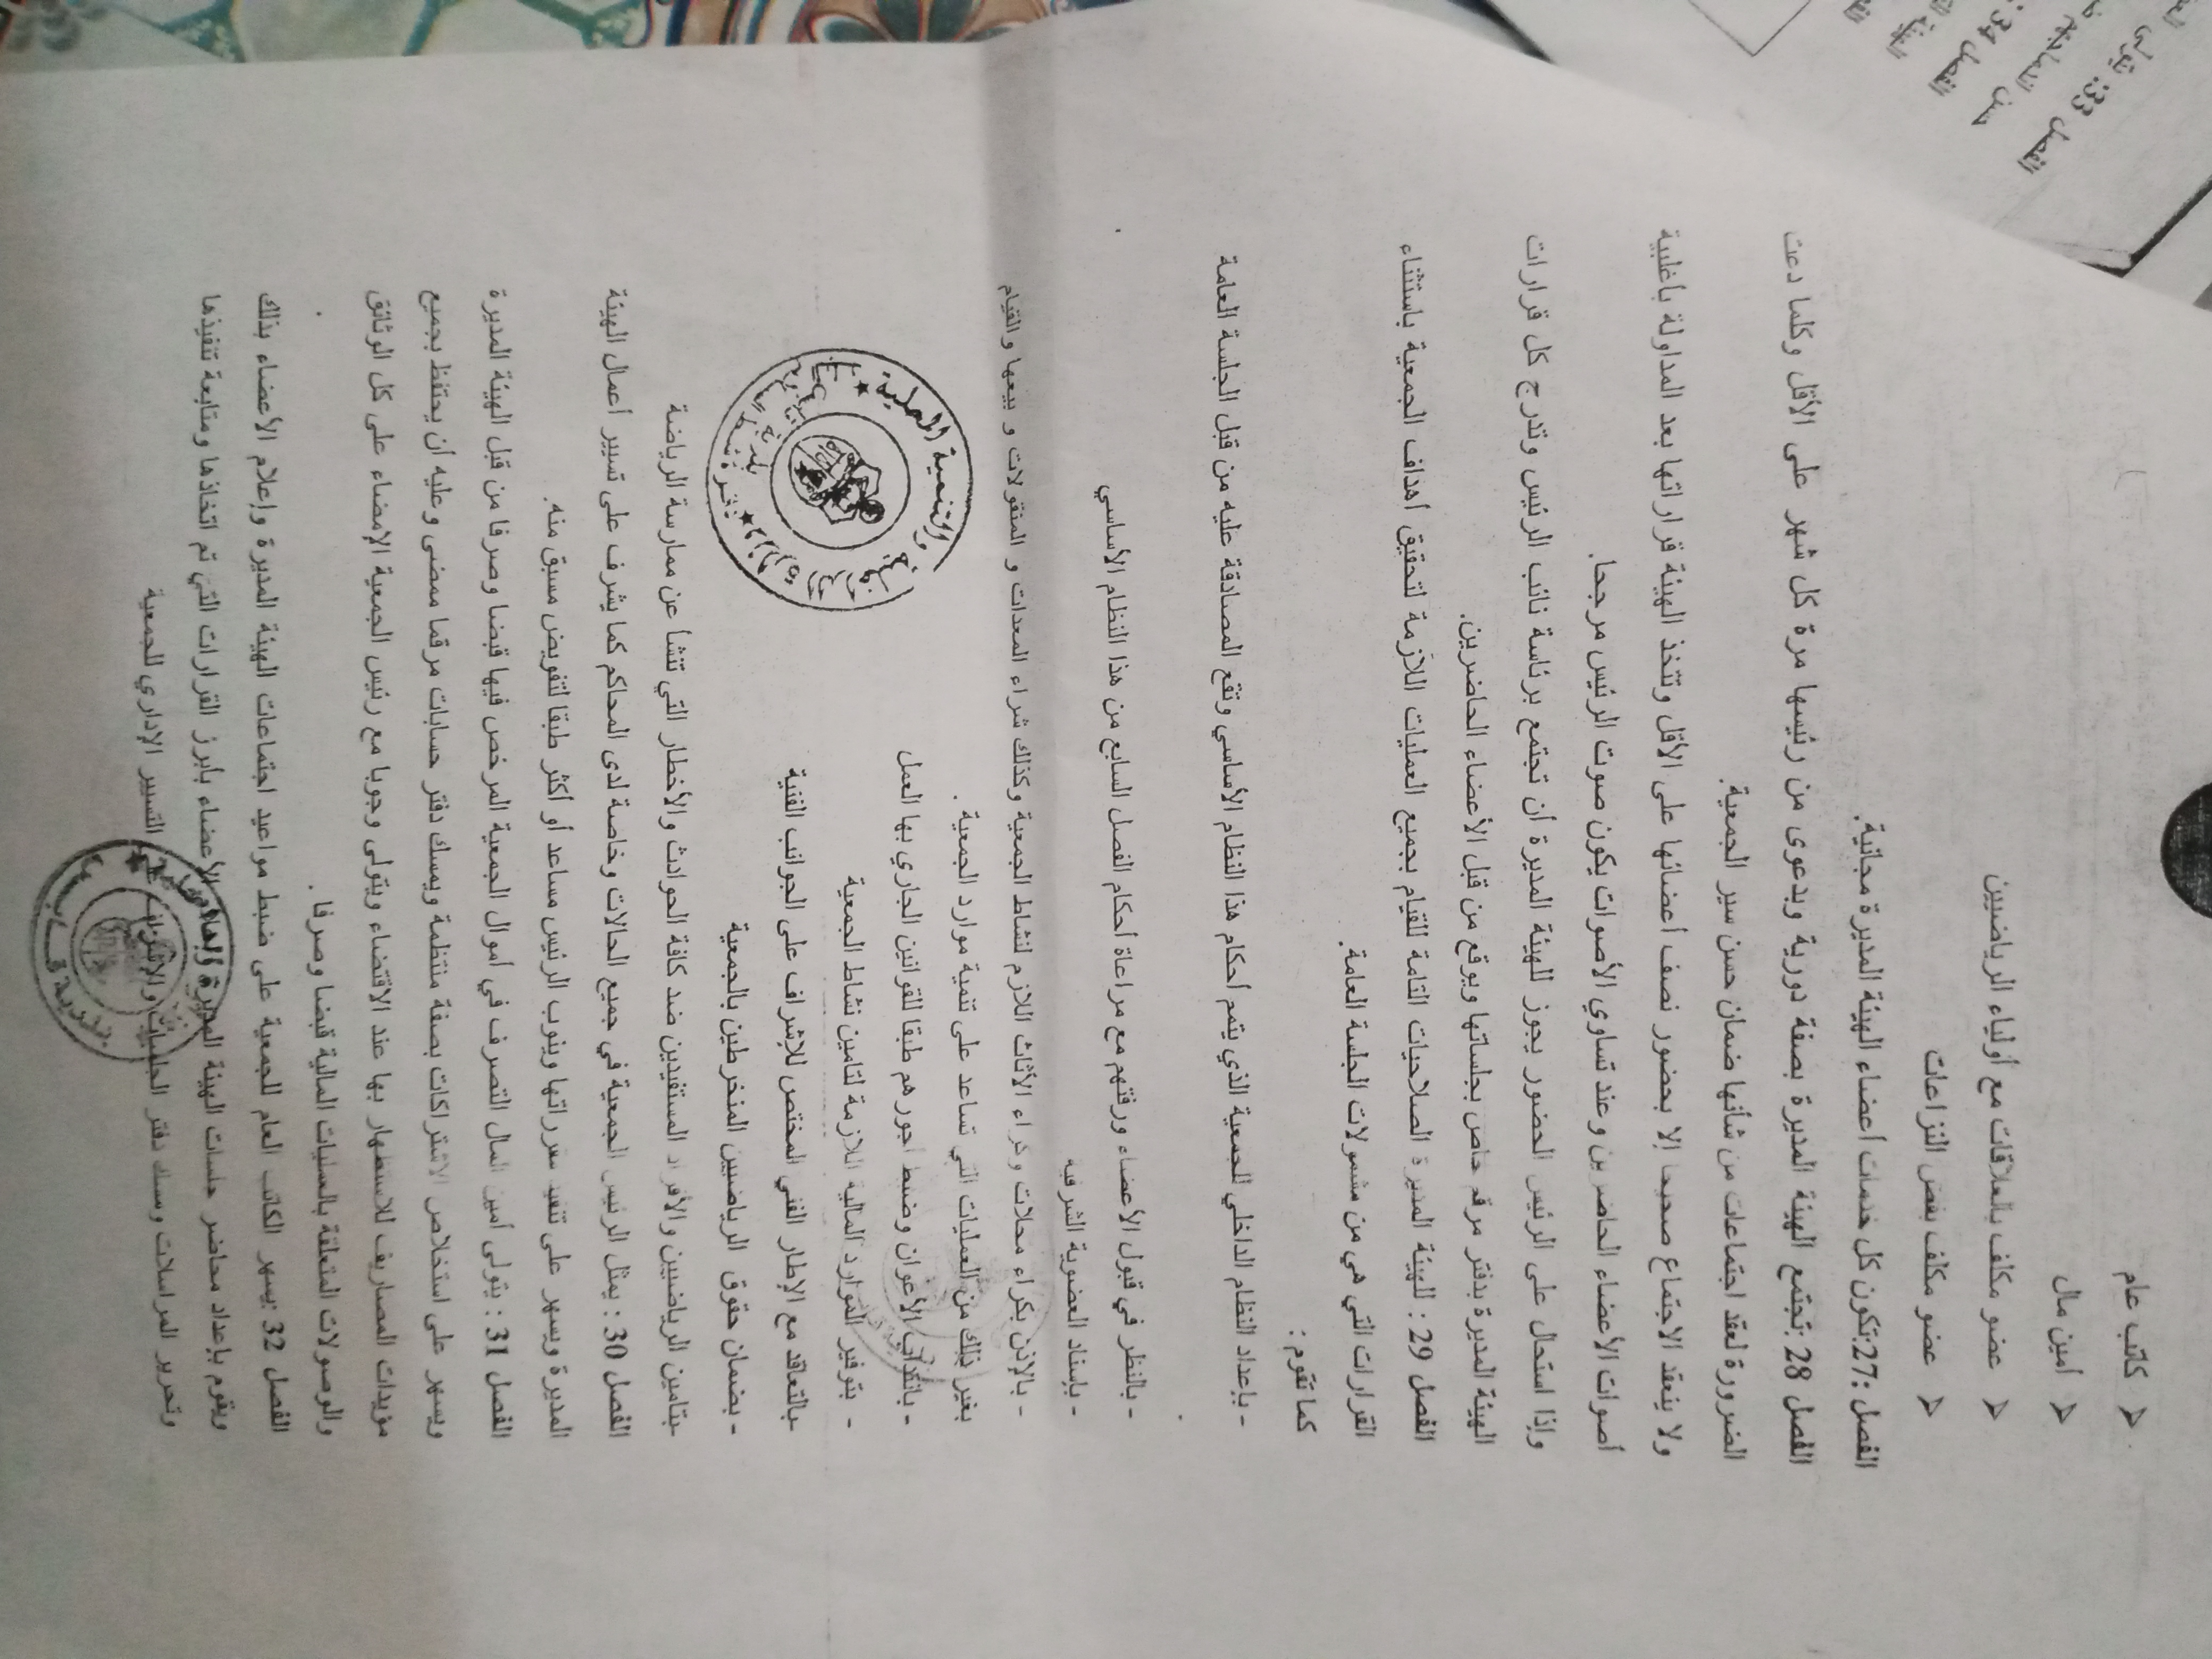 ➢ كاتب عام
➢ أمين مال
➢ عضو مكلف بالعلاقات مع أولياء الرياضيين
➢ عضو مكلف بفض النزاعات
الفصل :27:تكون كل خدمات أعضاء الهيئة المديرة مجانية.
الفصل 28 :تجتمع الهيئة المديرة بصفة دورية وبدعوى من رئيسها مرة كل شهر على الأقل وكلما دعت
الضرورة لعقد اجتماعات من شأنها ضمان حسن سير الجمعية.
ولا ينعقد الاجتماع صحيحا إلا بحضور نصف أعضائها على الأقل وتتخذ الهيئة قراراتها بعد المداولة بأغلبية
أصوات الأعضاء الحاضرين وعند تساوي الأصوات يكون صوت الرئيس مرجحا.
وإذا استحال على الرئيس الحضور يجوز للهيئة المديرة أن تجتمع برئاسة نائب الرئيس وتدرج كل قرارات
الهيئة المديرة بدفتر مرقم خاص بجلساتها ويوقع من قبل الأعضاء الحاضرين.
الفصل 29 : للهيئة المديرة الصلاحيات التامة للقيام بجميع العمليات اللازمة لتحقيق أهداف الجمعية باستثناء
القرارات التي هي من مشمولات الجلسة العامة.
كما تقوم :
- بإعداد النظام الداخلي للجمعية الذي يتمم أحكام هذا النظام الأساسي وتقع المصادقة عليه من قبل الجلسة العامة
- بالنظر في قبول الأعضاء ورفتهم مع مراعاة أحكام الفصل السابع من هذا النظام الأساسي
- بإسناد العضوية الشرفية
- بالإذن بكراء محلات وكراء الأثاث اللازم لنشاط الجمعية وكذلك شراء المعدات و المنقولات و بيعها والقيام
بغير ذلك من العمليات التي تساعد على تنمية موارد الجمعية .
- بانتداب الأعوان وضبط أجورهم طبقا للقوانين الجاري بها العمل
- بتوفير الموارد المالية اللازمة لتامين نشاط الجمعية
-بالتعاقد مع الإطار الفني المختص للإشراف على الجوانب الفنية
- بضمان حقوق الرياضيين المنخرطين بالجمعية
-بتامين الرياضيين والأفراد المستفيدين ضد كافة الحوادث والأخطار التي تنشأ عن ممارسة الرياضة
الفصل 30 : يمثل الرئيس الجمعية في جميع الحالات وخاصة لدى المحاكم كما يشرف على تسيير أعمال الهيئة
المديرة ويسهر على تنفيذ مقرراتها وينوب الرئيس مساعد أو أكثر طبقا لتفويض مسبق منه.
الفصل 31 : يتولى أمين المال التصرف في أموال الجمعية المرخص فيها قبضا وصرفا من قبل الهيئة المديرة
ويسهر على استخلاص الاشتراكات بصفة منتظمة ويمسك دفتر حسابات مرقما ممضى وعليه أن يحتفظ بجميع
مؤيدات المصاريف للاستظهار بها عند الاقتضاء ويتولى وجوبا مع رئيس الجمعية الإمضاء على كل الوثائق
والوصولات المتعلقة بالعمليات المالية قبضا وصرفا .
الفصل 32 :يسهر الكاتب العام للجمعية على ضبط مواعيد اجتماعات الهيئة المديرة وإعلام الأعضاء بذلك
ويقوم بإعداد محاضر جلسات الهيئة المديرة الأعضاء بأبرز القرارات التي تم اتخاذها ومتابعة تنفيذها
وتحرير المراسلات ومسك دفتر الجلسات والإشراف على التسيير الإداري للجمعية
والتنمية المحلية
الفصل 33 :
الفصل 34 :